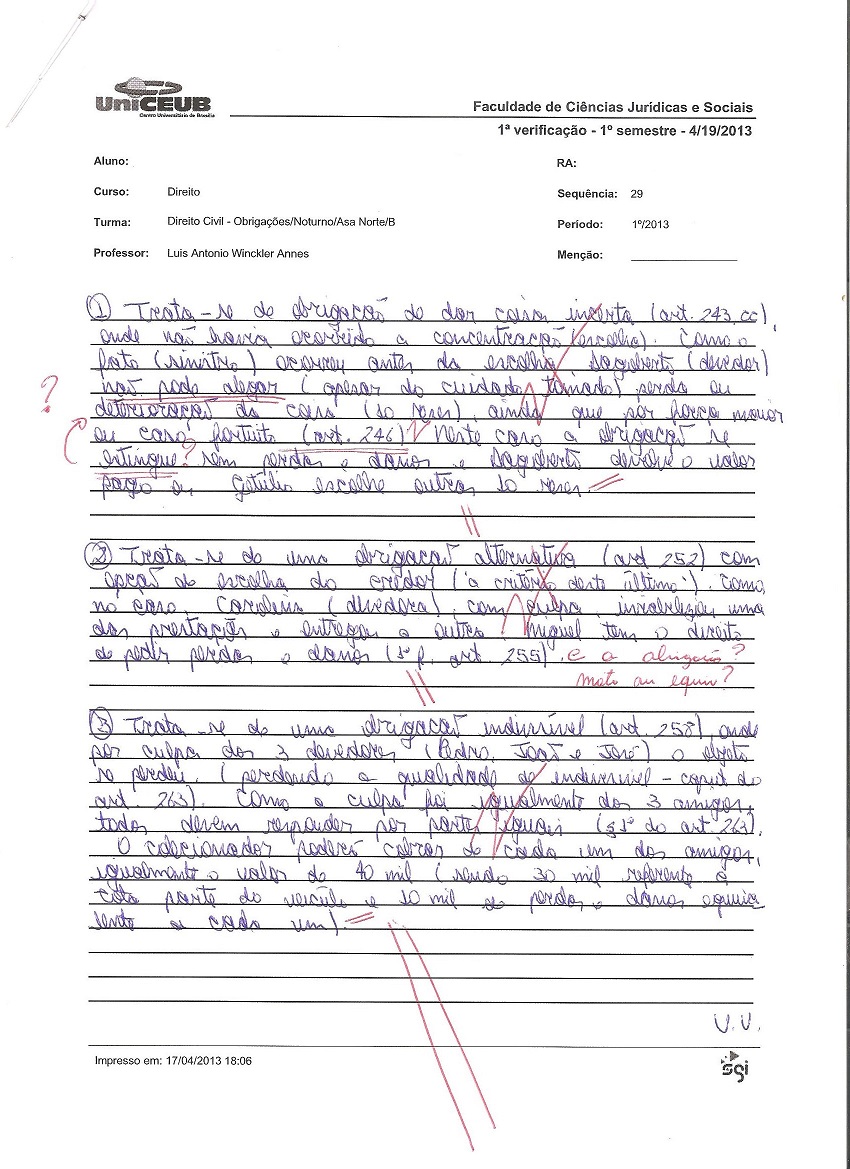 UniCEUB
Centro Universitário de Brasília
Faculdade de Ciências Jurídicas e Sociais
1ª verificação - 1º semestre - 4/19/2013
Aluno:
RA:
Curso: Direito
Sequência: 29
Turma: Direito Civil - Obrigações/Noturno/Asa Norte/B
Período: 1º/2013
Professor: Luis Antonio Winckler Annes
Menção:
① Trata-se de obrigação de dar coisa incerta (art. 243, CC),
onde não havia ocorrido a concentração (escolha). Como o
fato (sinistro) ocorreu antes da escolha, Dagoberto (devedor)
não pode alegar (apesar do cuidado tomado) perda ou
?
deterioração da coisa (10 reses), ainda que por força maior
ou caso fortuito (art. 246). Neste caso a obrigação se
extingue? sem perdas e danos e Dagoberto devolve o valor
pago ou Getúlio escolhe outras 10 reses.
② Trata-se de uma obrigação alternativa (art 252) com
opção de escolha do credor ("a critério deste último"). Como,
no caso, Cordelia (devedora), com culpa inviabilizou uma
das prestação e entregou a outra, Miguel tem o direito
de pedir perdas e danos (1ª p. art. 255). e a obrigação?
mato ou equin?
③ Trata-se de uma obrigação indivisível (art. 258), onde
por culpa dos 3 devedores (Pedro, João e José) o objeto
se perdeu, (perdendo a qualidade de indivisível - caput do
art. 263). Como a culpa foi igualmente dos 3 amigos,
todos devem responder por partes iguais (§1º do art. 263).
O colecionador poderá cobrar de cada um dos amigos,
igualmente o valor de 40 mil (sendo 30 mil referente a
cota parte do veículo e 10 mil de perdas e danos equiva
lente a cada um).
V.V.
Impresso em: 17/04/2013 18:06
sgi